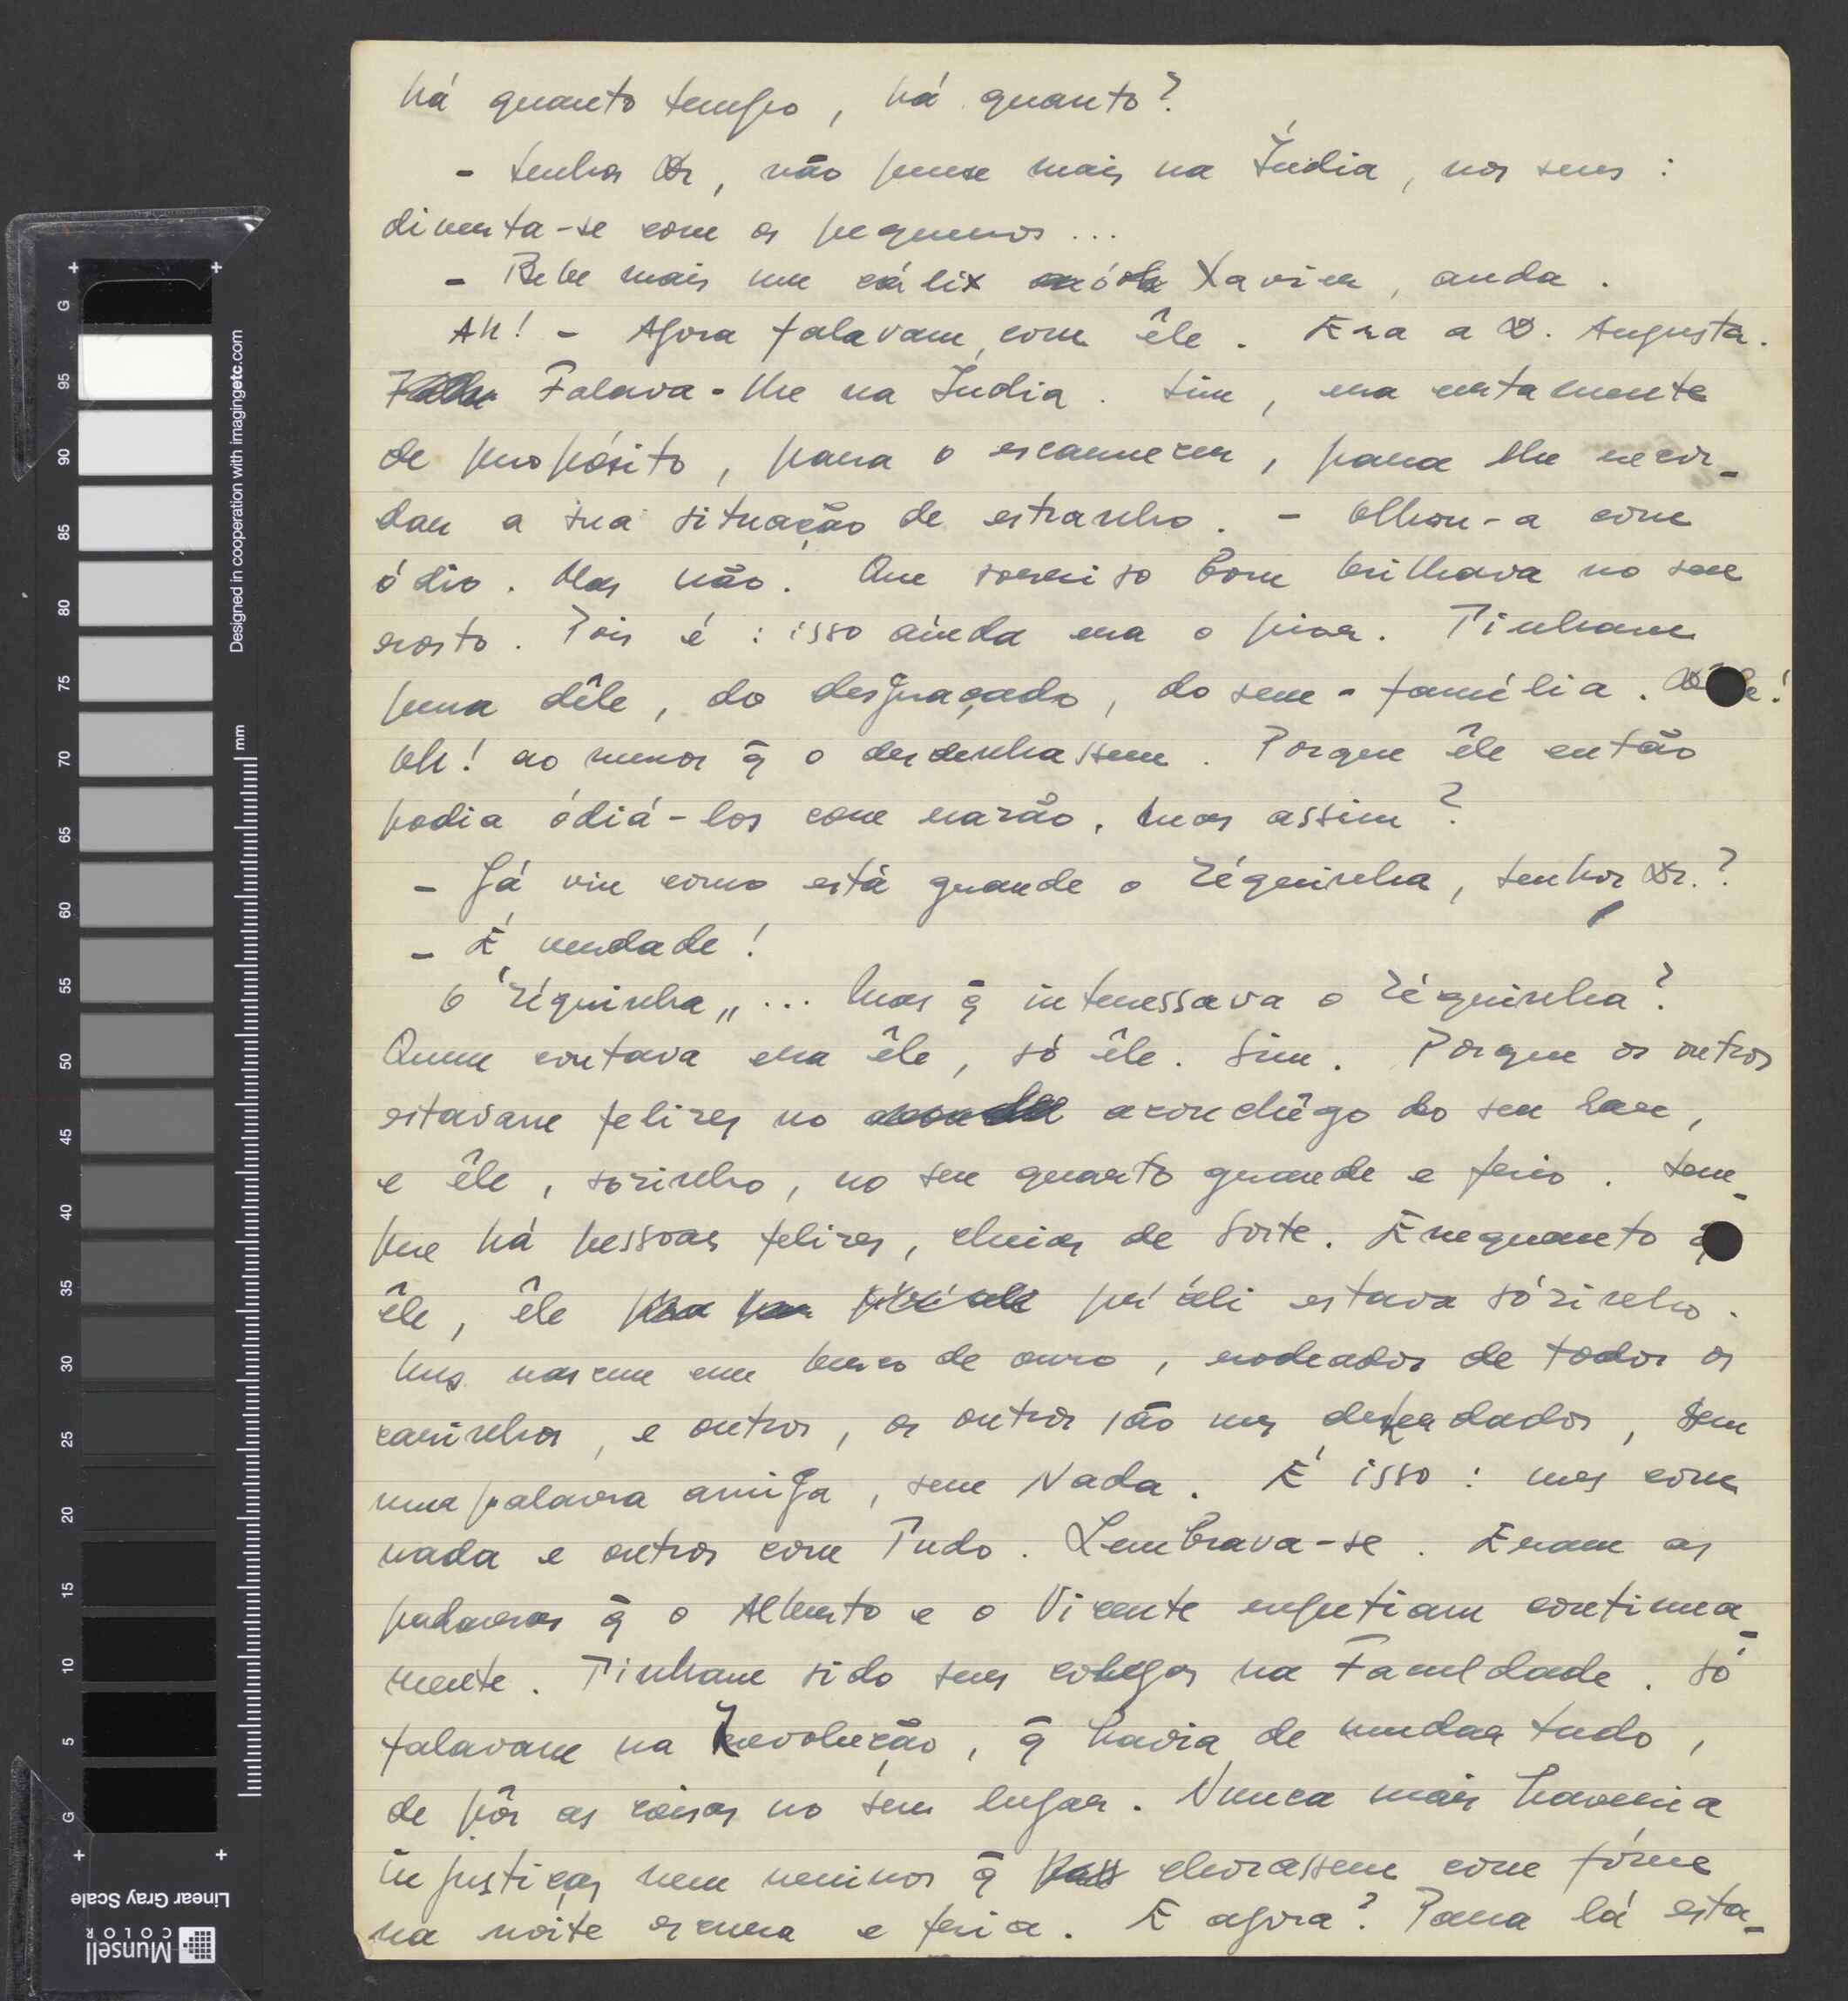 há quanto tempo, há quanto?
- Senhor Dr, não pense mais na Índia, nos seus:
divirta-se com os pequenos...
- Bebe mais um cálix ó Xavier, anda.
Ah! - Agora falavam com êle. Era a D. Augusta.
Falava-lhe na Índia. Sim, era certamente
de propósito, para o escarnecer, para lhe recor-
dar a sua situação de estranho. - Olhou-a com
ódio. Mas não. Que sorriso bom brilhava no seu
rosto. Pois é: isso ainda era o pior. Tinham
pena dêle, do desgraçado, do sem-família.
Oh! ao menos q̃ o desdenhassem. Porque êle então
podia ódiá-los com razão. Mas assim?
- Já viu como está grande o Zéquinha, Senhor Dr.?
- É verdade!
O "Zéquinha"... Mas q̃ interessava o Zéquinha?
Quem contava era êle, só êle. Sim. Porque os outros
estavam felizes no aconchêgo do seu lar,
e êle, sòzinho, no seu quarto grande e frio. Sem-
pre há pessoas felizes, cheias de sorte. Enquanto q̃
êle, êle pr'áli estava sózinho.
Uns nascem em berço de ouro, rodeados de todos os
carinhos, e outros, os outros são uns deserdados, sem
uma palavra amiga, sem Nada. É isso: uns com
nada e outros com Tudo. Lembrava-se. Eram as
palavras q̃ o Alberto e o Vicente repetiam contínua-
mente. Tinham sido seus colegas na Faculdade. Só
falavam na Revolução, q̃ havia de mudar tudo,
de pôr as coisas no seu lugar. Nunca mais haveria
injustiças nem meninos q̃ chorassem com fóme
na noite escura e fria. E agora? Para lá esta-
Designed in cooperation with imagingetc.com
mm
G 95 90 85 80 75 70 65 60 55 50 45 40 35 30 25 20 15 10 5 G
Linear Gray Scale
Munsell
COLOR